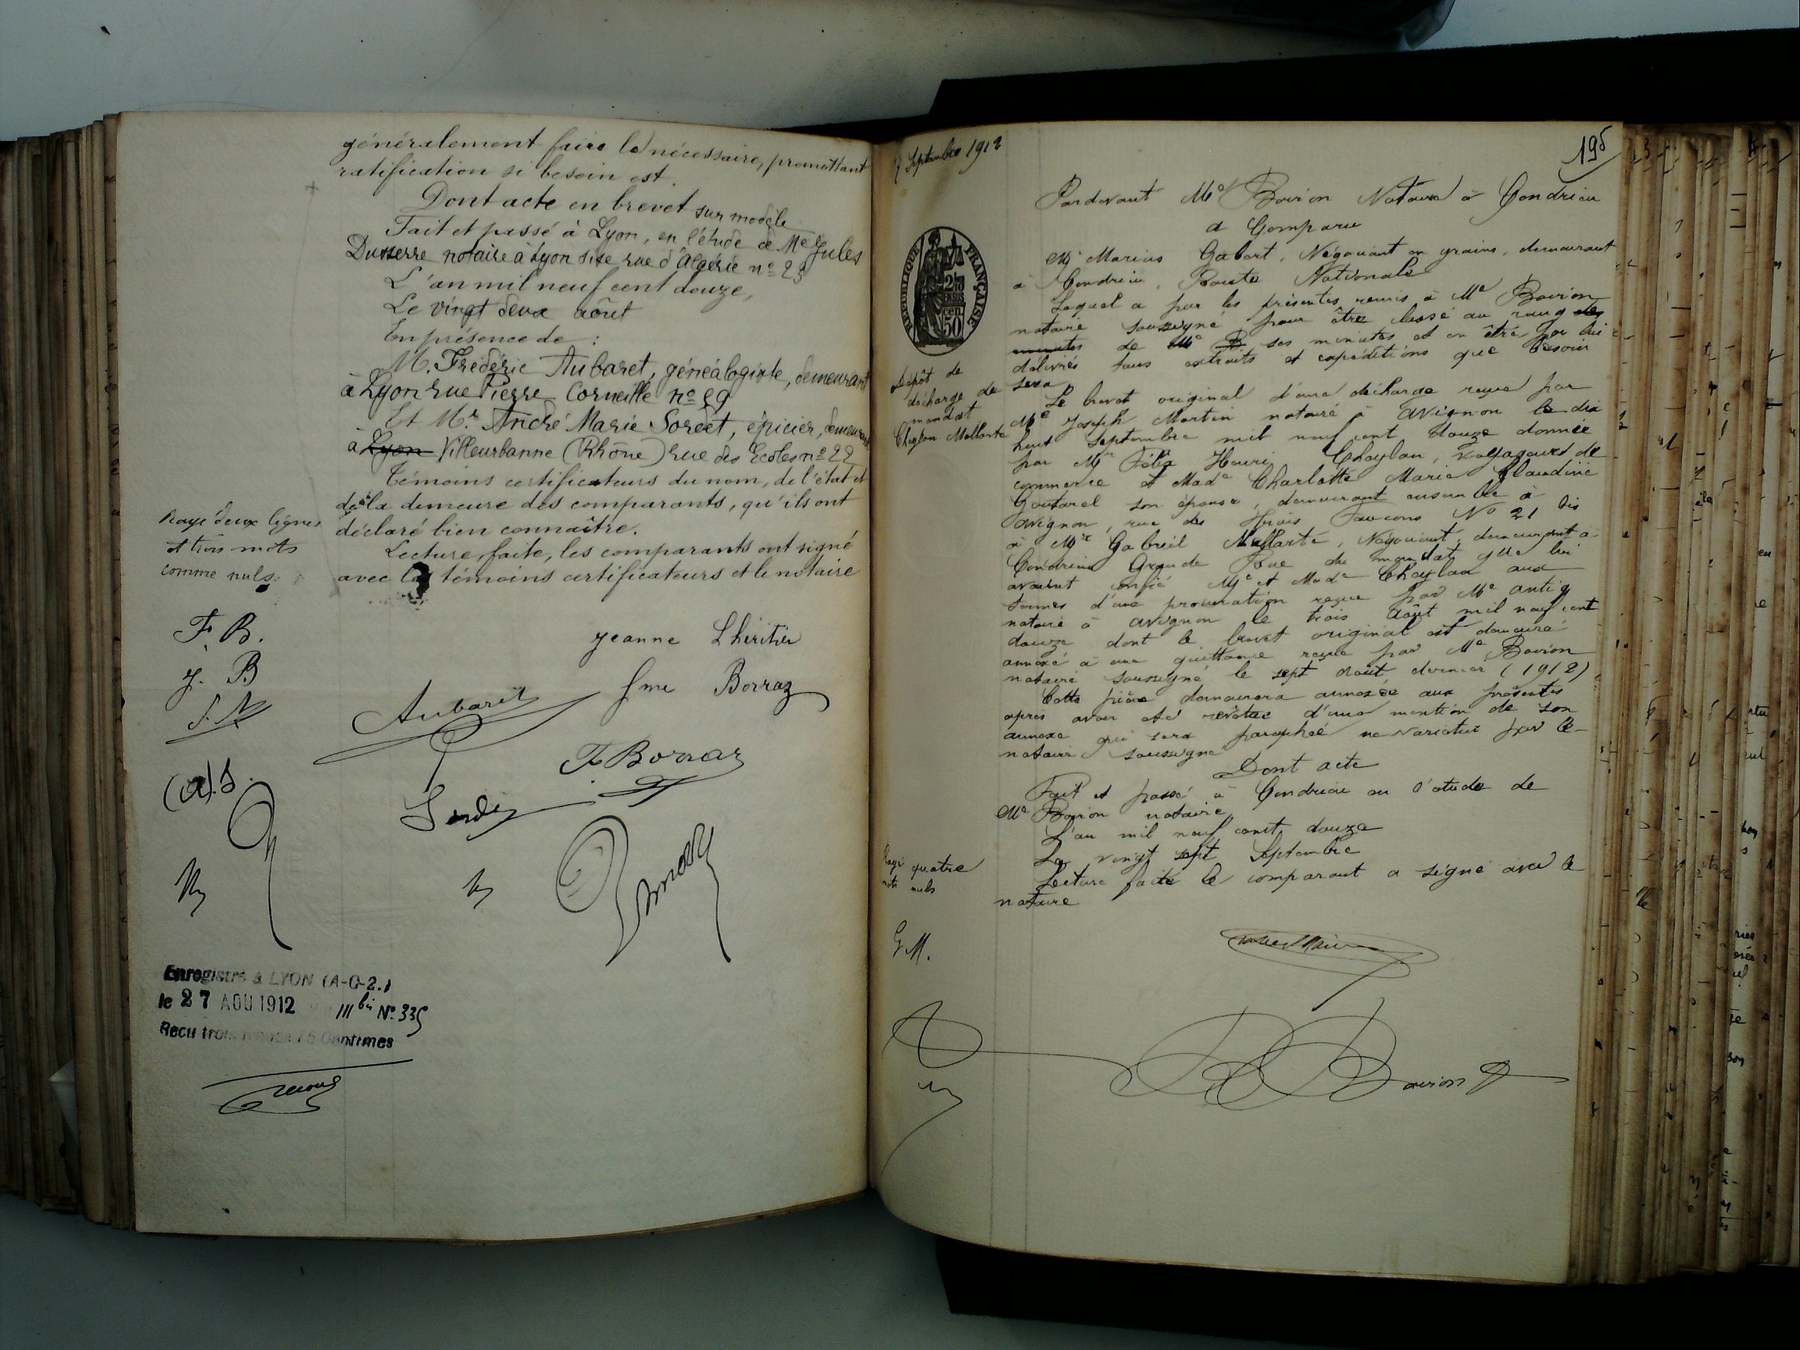 généralement faire le nécessaire, promettant
ratification si besoin est.
Dont acte en brevet sur modèle
Fait et passé à Lyon, en l'étude de Me Jules
Dusserre notaire à Lyon sise rue d'Algérie no 23
L'an mil neuf cent douze,
Le vingt deux août
En présence de :
M. Frédéric Aubaret, généalogiste, demeurant
à Lyon rue Pierre Corneille no 29
Et Mr André Marie Sordet, épicier, demeurant
à Lyon Villeurbanne (Rhône) rue des Ecoles no 22
Témoins certificateurs du nom, de l'état et
de la demeure des comparants, qu'ils ont
déclaré bien connaître.
Lecture faite, les comparants ont signé
avec les témoins certificateurs et le notaire
Rayé deux lignes
et trois mots
comme nuls
F. B.
J. B
Jeanne Lhéritier
fme Borraz
Aubaret
F. Borraz
(a) S.
Enregistré à LYON (A-C-2.)
le 27 AOU 1912 III bis No 335
Reçu trois francs 75 Centimes
195
Septembre 1912
Pardevant Me Boiron Notaire à Condrieu
a Comparu
Mr Marius Gabert, Négociant en grains, demeurant
à Condrieu, Route Nationale
Lequel a par les présentes remis à Me Boiron
notaire soussigné pour être classé au rang des
minutes de Me B ses minutes et en être par lui
délivrés tous extraits et expéditions que besoin
sera
RÉPUBLIQUE FRANÇAISE
50
Dépôt de
décharge de
mandat
Chaylan Mallarte
Le brevet original d'une décharge reçue par
Me Joseph Martin notaire à Avignon le dix
huit Septembre mil neuf cent douze donnée
par Mr Félix Henri Chaylan, voyageurs de
commerce et Made Charlotte Marie Claudine
Goutarel son épouse, demeurant ensemble à
Avignon, rue des Trois Faucons No 21 bis
à Mr Gabriel Mallarte, Négociant, demeurant à
Condrieu Grande Rue du mandat que lui
avaient confié Mr et Made Chaylan aux
termes d'une procuration reçue par Me Antiq
notaire à Avignon le trois Août mil neuf cent
douze dont le brevet original est demeuré
annexé à une quittance reçue par Me Boiron
notaire soussigné le sept août dernier (1912)
Cette pièce demeurera annexée aux présentes
après avoir été revêtue d'une mention de son
annexe qui sera paraphée ne varietur par le
notaire soussigné
Dont acte
Fait et passé à Condrieu en l'étude de
Me Boiron notaire
L'an mil neuf cent douze
Le vingt sept Septembre
Lecture faite le comparant a signé avec le
notaire
Rayé quatre
mots nuls
G M.
Boiron